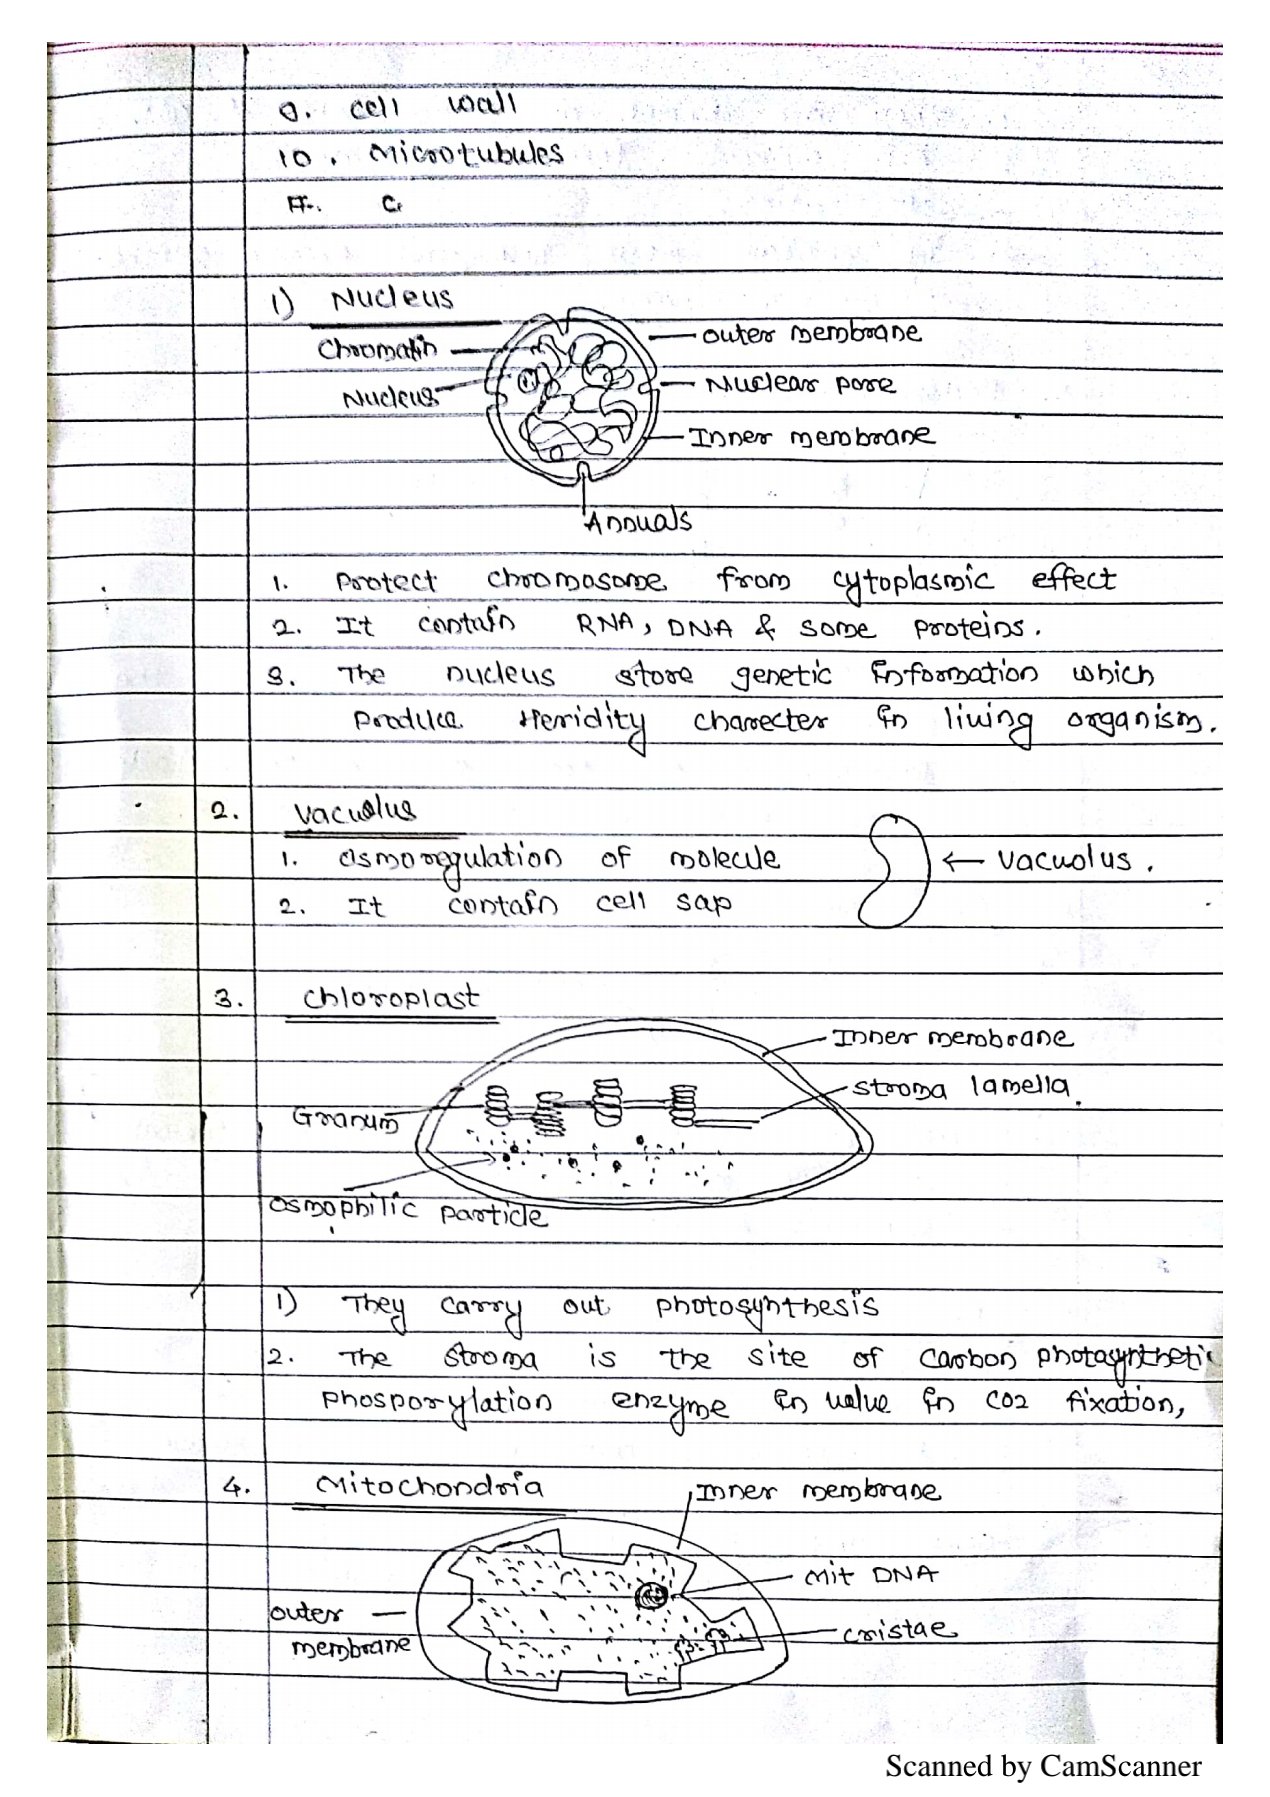 9. cell wall
10. Microtubules
1) Nucleus
Chromatin
Nucleus
outer membrane
Nuclear pore
Inner membrane
Annuals
1. Protect chromosome from cytoplasmic effect
2. It contain RNA, DNA & some proteins.
3. The nucleus store genetic information which
produce Heridity charecter in living organism.
2. Vacuolus
1. osmoregulation of molecule
← vacuolus.
2. It contain cell sap
3. chloroplast
Inner membrane
stroma lamella
Granum
osmophilic particle
1) They carry out photosynthesis
2. The stroma is the site of carbon photosynthetic
phosporylation enzyme in value in CO2 fixation,
4. Mitochondria
Inner membrane
Mit DNA
outer
membrane
cristae
Scanned by CamScanner